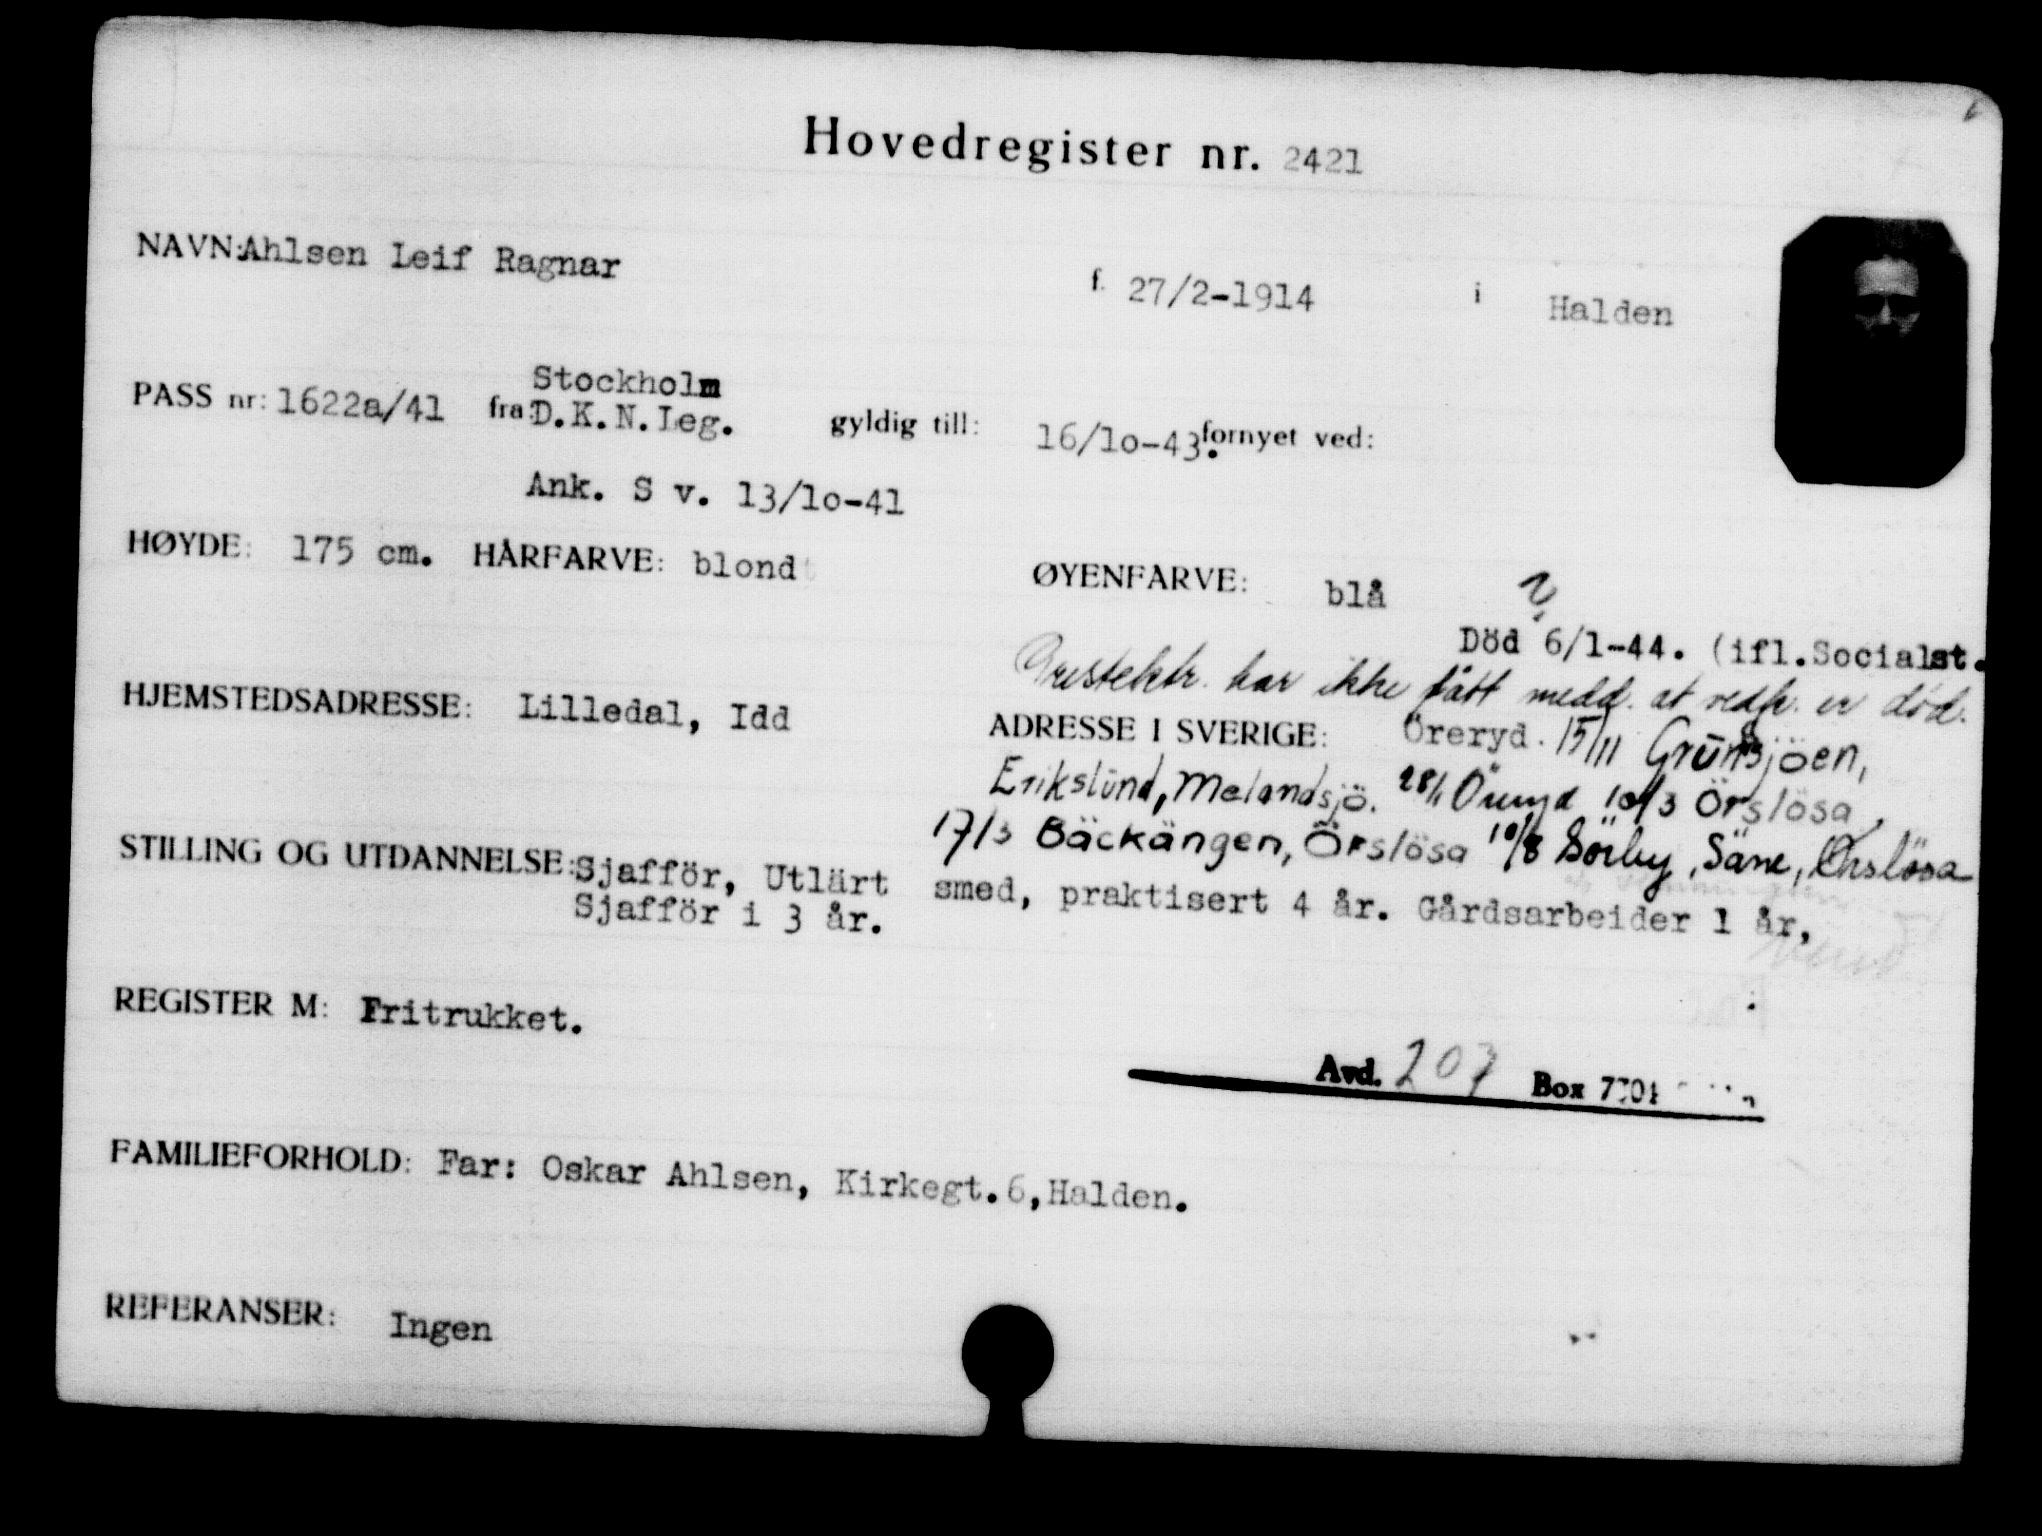 Hovedregister nr. 2421
NAVN: Ahlsen Leif Ragnar f. 27/2-1914 i Halden
Stockholm
PASS nr: 1622a/41 fra: D.K.N.Leg. gyldig till: 16/10-43. fornyet ved:
Ank. S v. 13/10-41
HØYDE: 175 cm. HÅRFARVE: blond ØYENFARVE: blå
?
Död 6/1-44. (ifl.Socialst.
har ikke fått medd. at vedk. er død.
HJEMSTEDSADRESSE: Lilledal, Idd
ADRESSE I SVERIGE: Öreryd. 15/11 Grünsjöen,
Erikslünd, Melandsjö. 28/1 Öreryd 10/3 Örslösa,
17/3 Bäckängen, Örslösa 10/8 Sörby, Säne, Örslösa
STILLING OG UTDANNELSE: Sjafför, Utlärt smed, praktisert 4 år. Gårdsarbeider 1 år,
Sjafför i 3 år.
REGISTER M: Fritrukket.
Avd. 207 Box 7701
FAMILIEFORHOLD: Far: Oskar Ahlsen, Kirkegt.6,Halden.
REFERANSER: Ingen